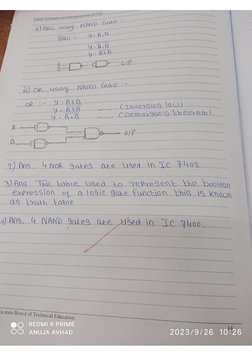 a) AND using NAND Gate :-
AND :- Y = A.B
Y = A.B
Y = A.B
A
B
O/P
b) OR using NAND Gate :-
OR :- Y = A+B
Y = A+B (Inversion law)
Y = A.B (Demorgan's theorem)
A
B
O/P
2) Ans. 4 NOR gates are used in IC 7402.
3) Ans. The table used to represent the boolean
expression of a logic gate function this is known
as truth table.
4) Ans. 4 NAND gates are used in IC 7400.
a state Board of Technical Education
REDMI 9 PRIME
ANUJA AVHAD
2023/9/26 10:26